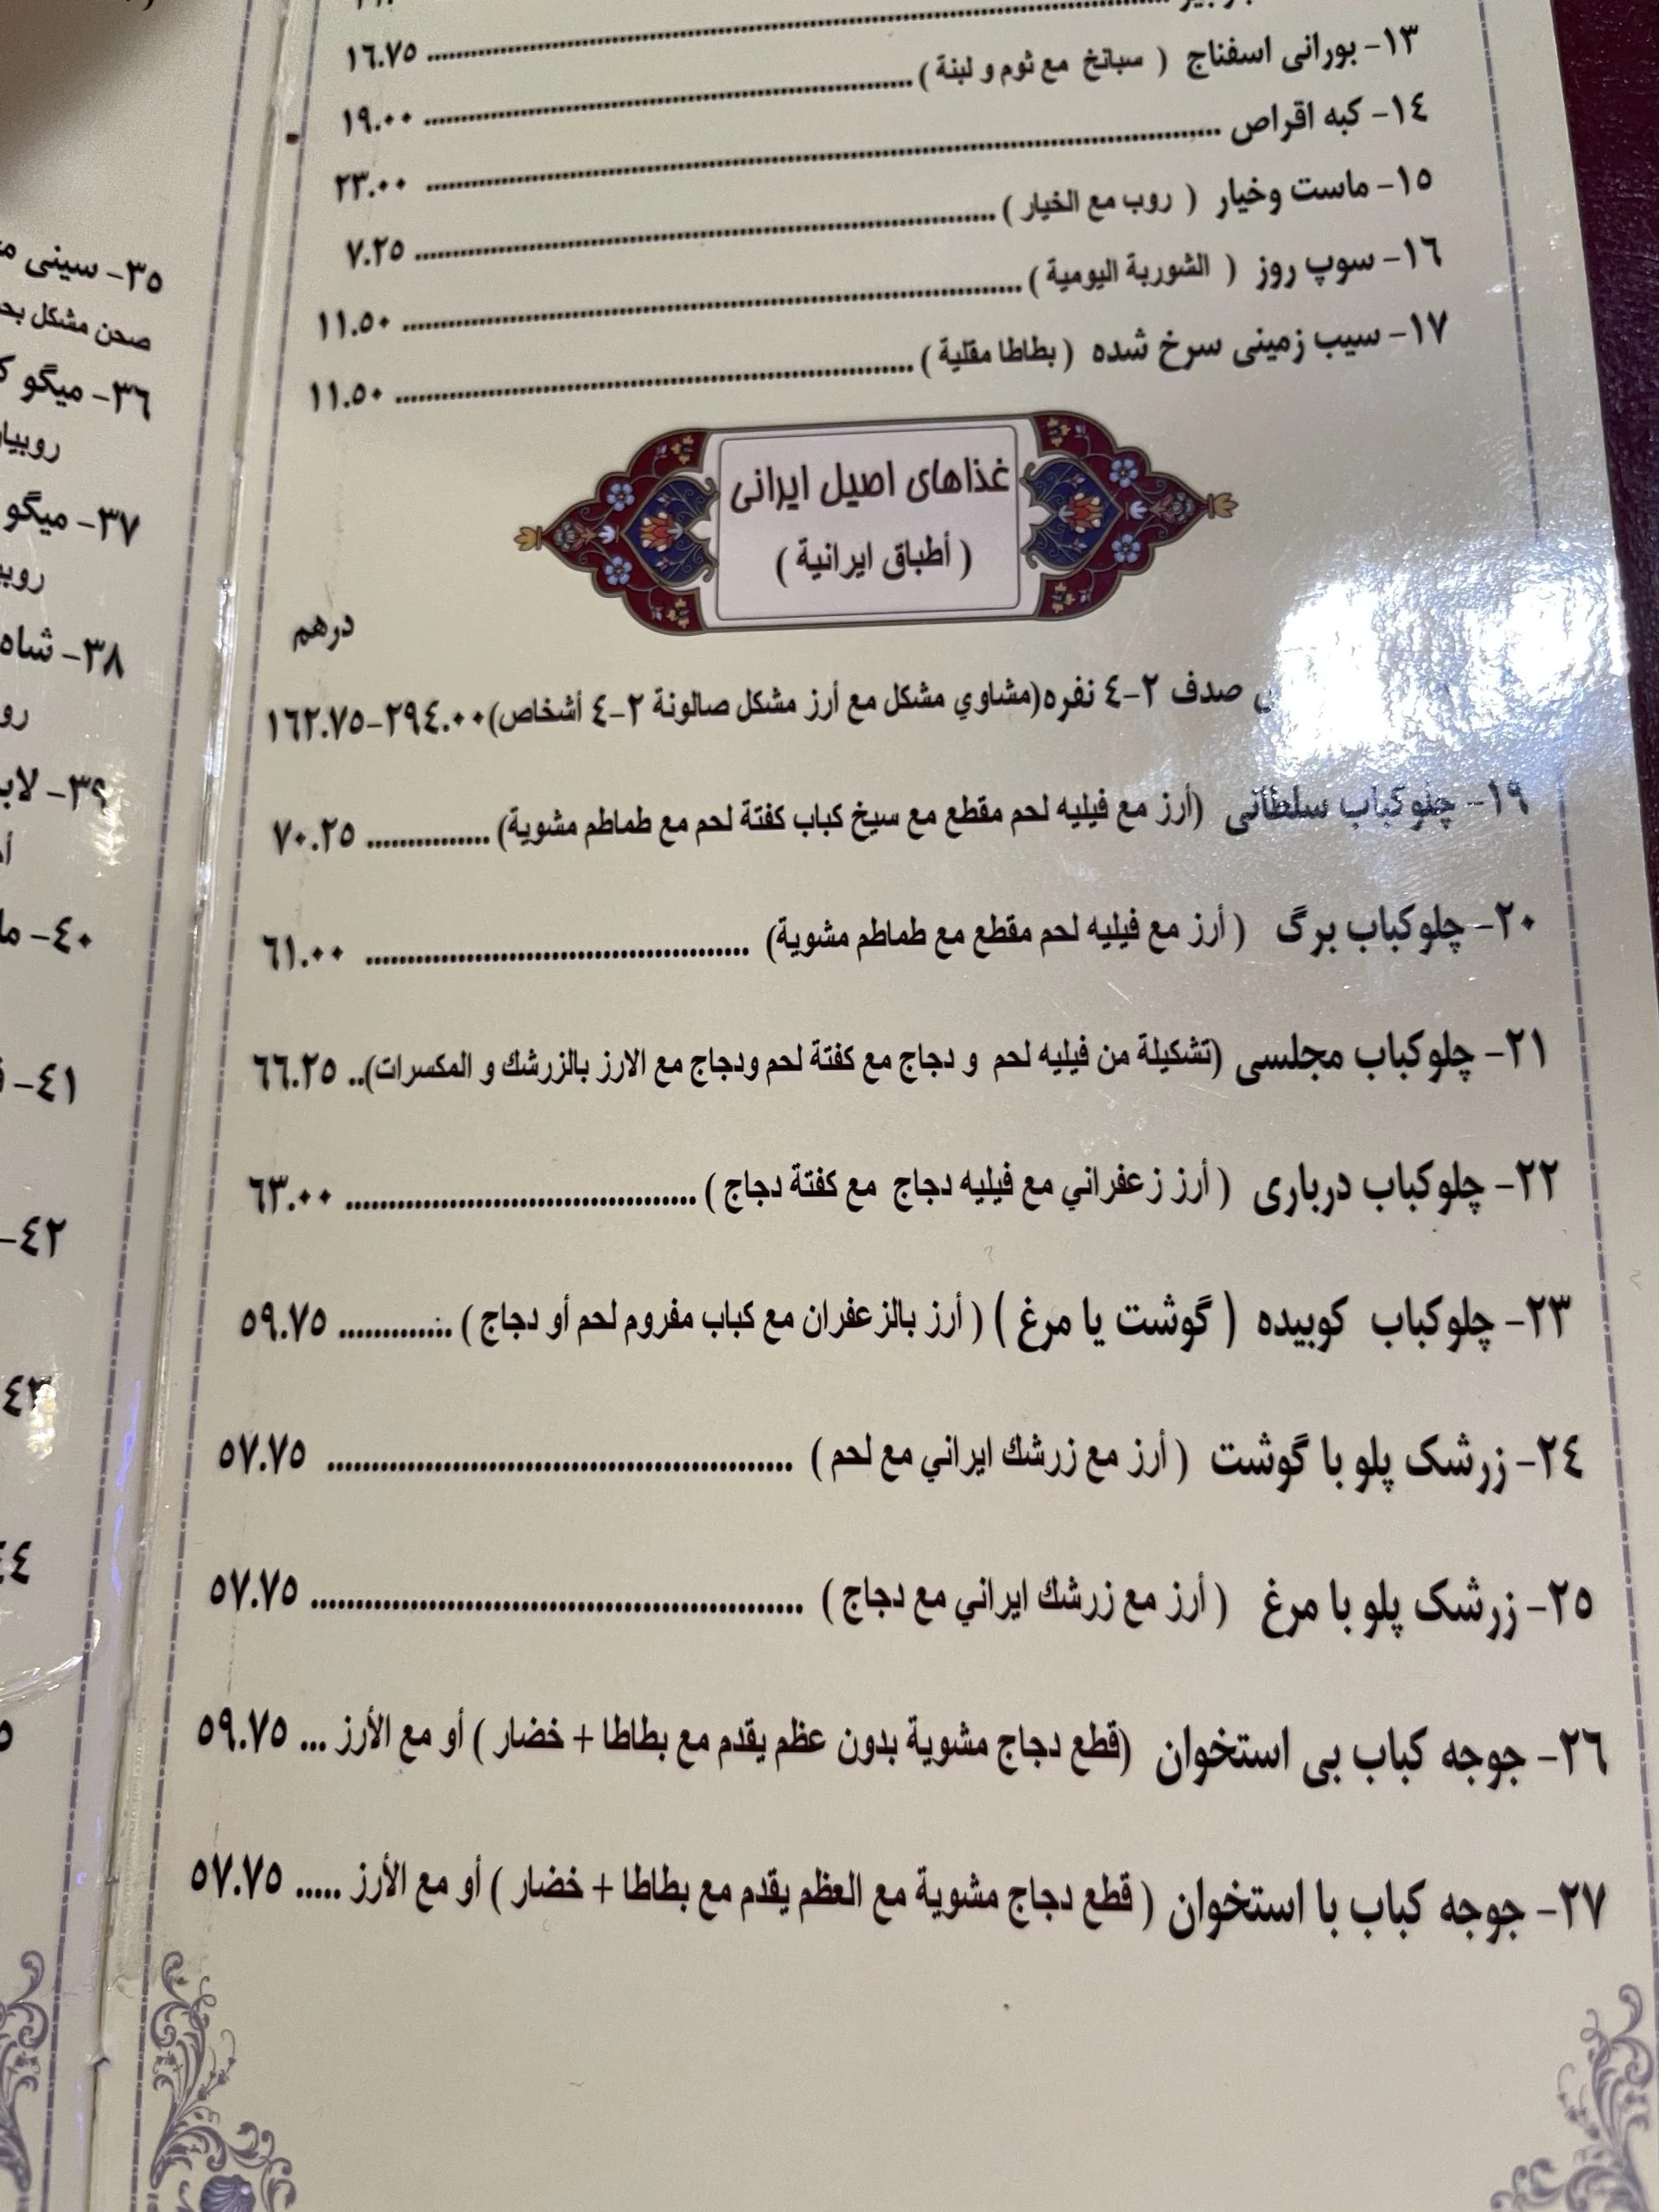 ١٦.٧٥ ........................
١٣- بورانی اسفناج ( سبانخ مع ثوم و لبنة ) ........................ ١٩.٠٠
١٤- كبه اقراص ........................ ٢٣.٠٠
١٥- ماست وخیار ( روب مع الخيار ) ........................ ٧.٢٥
١٦- سوپ روز ( الشوربة اليومية ) ........................ ١١.٥٠
١٧- سیب زمینی سرخ شده ( بطاطا مقلية ) ........................ ١١.٥٠
غذاهای اصیل ایرانی
( أطباق ايرانية )
درهم
صدف ٢-٤ نفره (مشاوي مشكل مع أرز مشكل صالونة ٢-٤ أشخاص) ٢٩٤.٠٠-١٦٢.٧٥
١٩- چلوکباب سلطانی (أرز مع فيليه لحم مقطع مع سيخ كباب كفتة لحم مع طماطم مشوية) .............. ٧٠.٢٥
٢٠- چلوکباب برگ ( أرز مع فيليه لحم مقطع مع طماطم مشوية) ........................ ٦١.٠٠
٢١- چلوکباب مجلسی (تشكيلة من فيليه لحم و دجاج مع كفتة لحم ودجاج مع الارز بالزرشك و المكسرات).. ٦٦.٢٥
٢٢- چلوکباب درباری ( أرز زعفراني مع فيليه دجاج مع كفتة دجاج ) ........................ ٦٣.٠٠
٢٣- چلوکباب کوبیده ( گوشت یا مرغ ) ( أرز بالزعفران مع كباب مفروم لحم أو دجاج ) ............. ٥٩.٧٥
٢٤- زرشک پلو با گوشت ( أرز مع زرشك ايراني مع لحم ) ........................ ٥٧.٧٥
٢٥- زرشک پلو با مرغ ( أرز مع زرشك ايراني مع دجاج ) ........................ ٥٧.٧٥
٢٦- جوجه کباب بی استخوان (قطع دجاج مشوية بدون عظم يقدم مع بطاطا + خضار ) أو مع الأرز ... ٥٩.٧٥
٢٧- جوجه کباب با استخوان ( قطع دجاج مشوية مع العظم يقدم مع بطاطا + خضار ) أو مع الأرز ..... ٥٧.٧٥
٣٥- سینی
صحن مشكل
٣٦- میگو
٣٧- میگو
٣٨-
٣٩-
٤٠-
٤١-
٤٢-